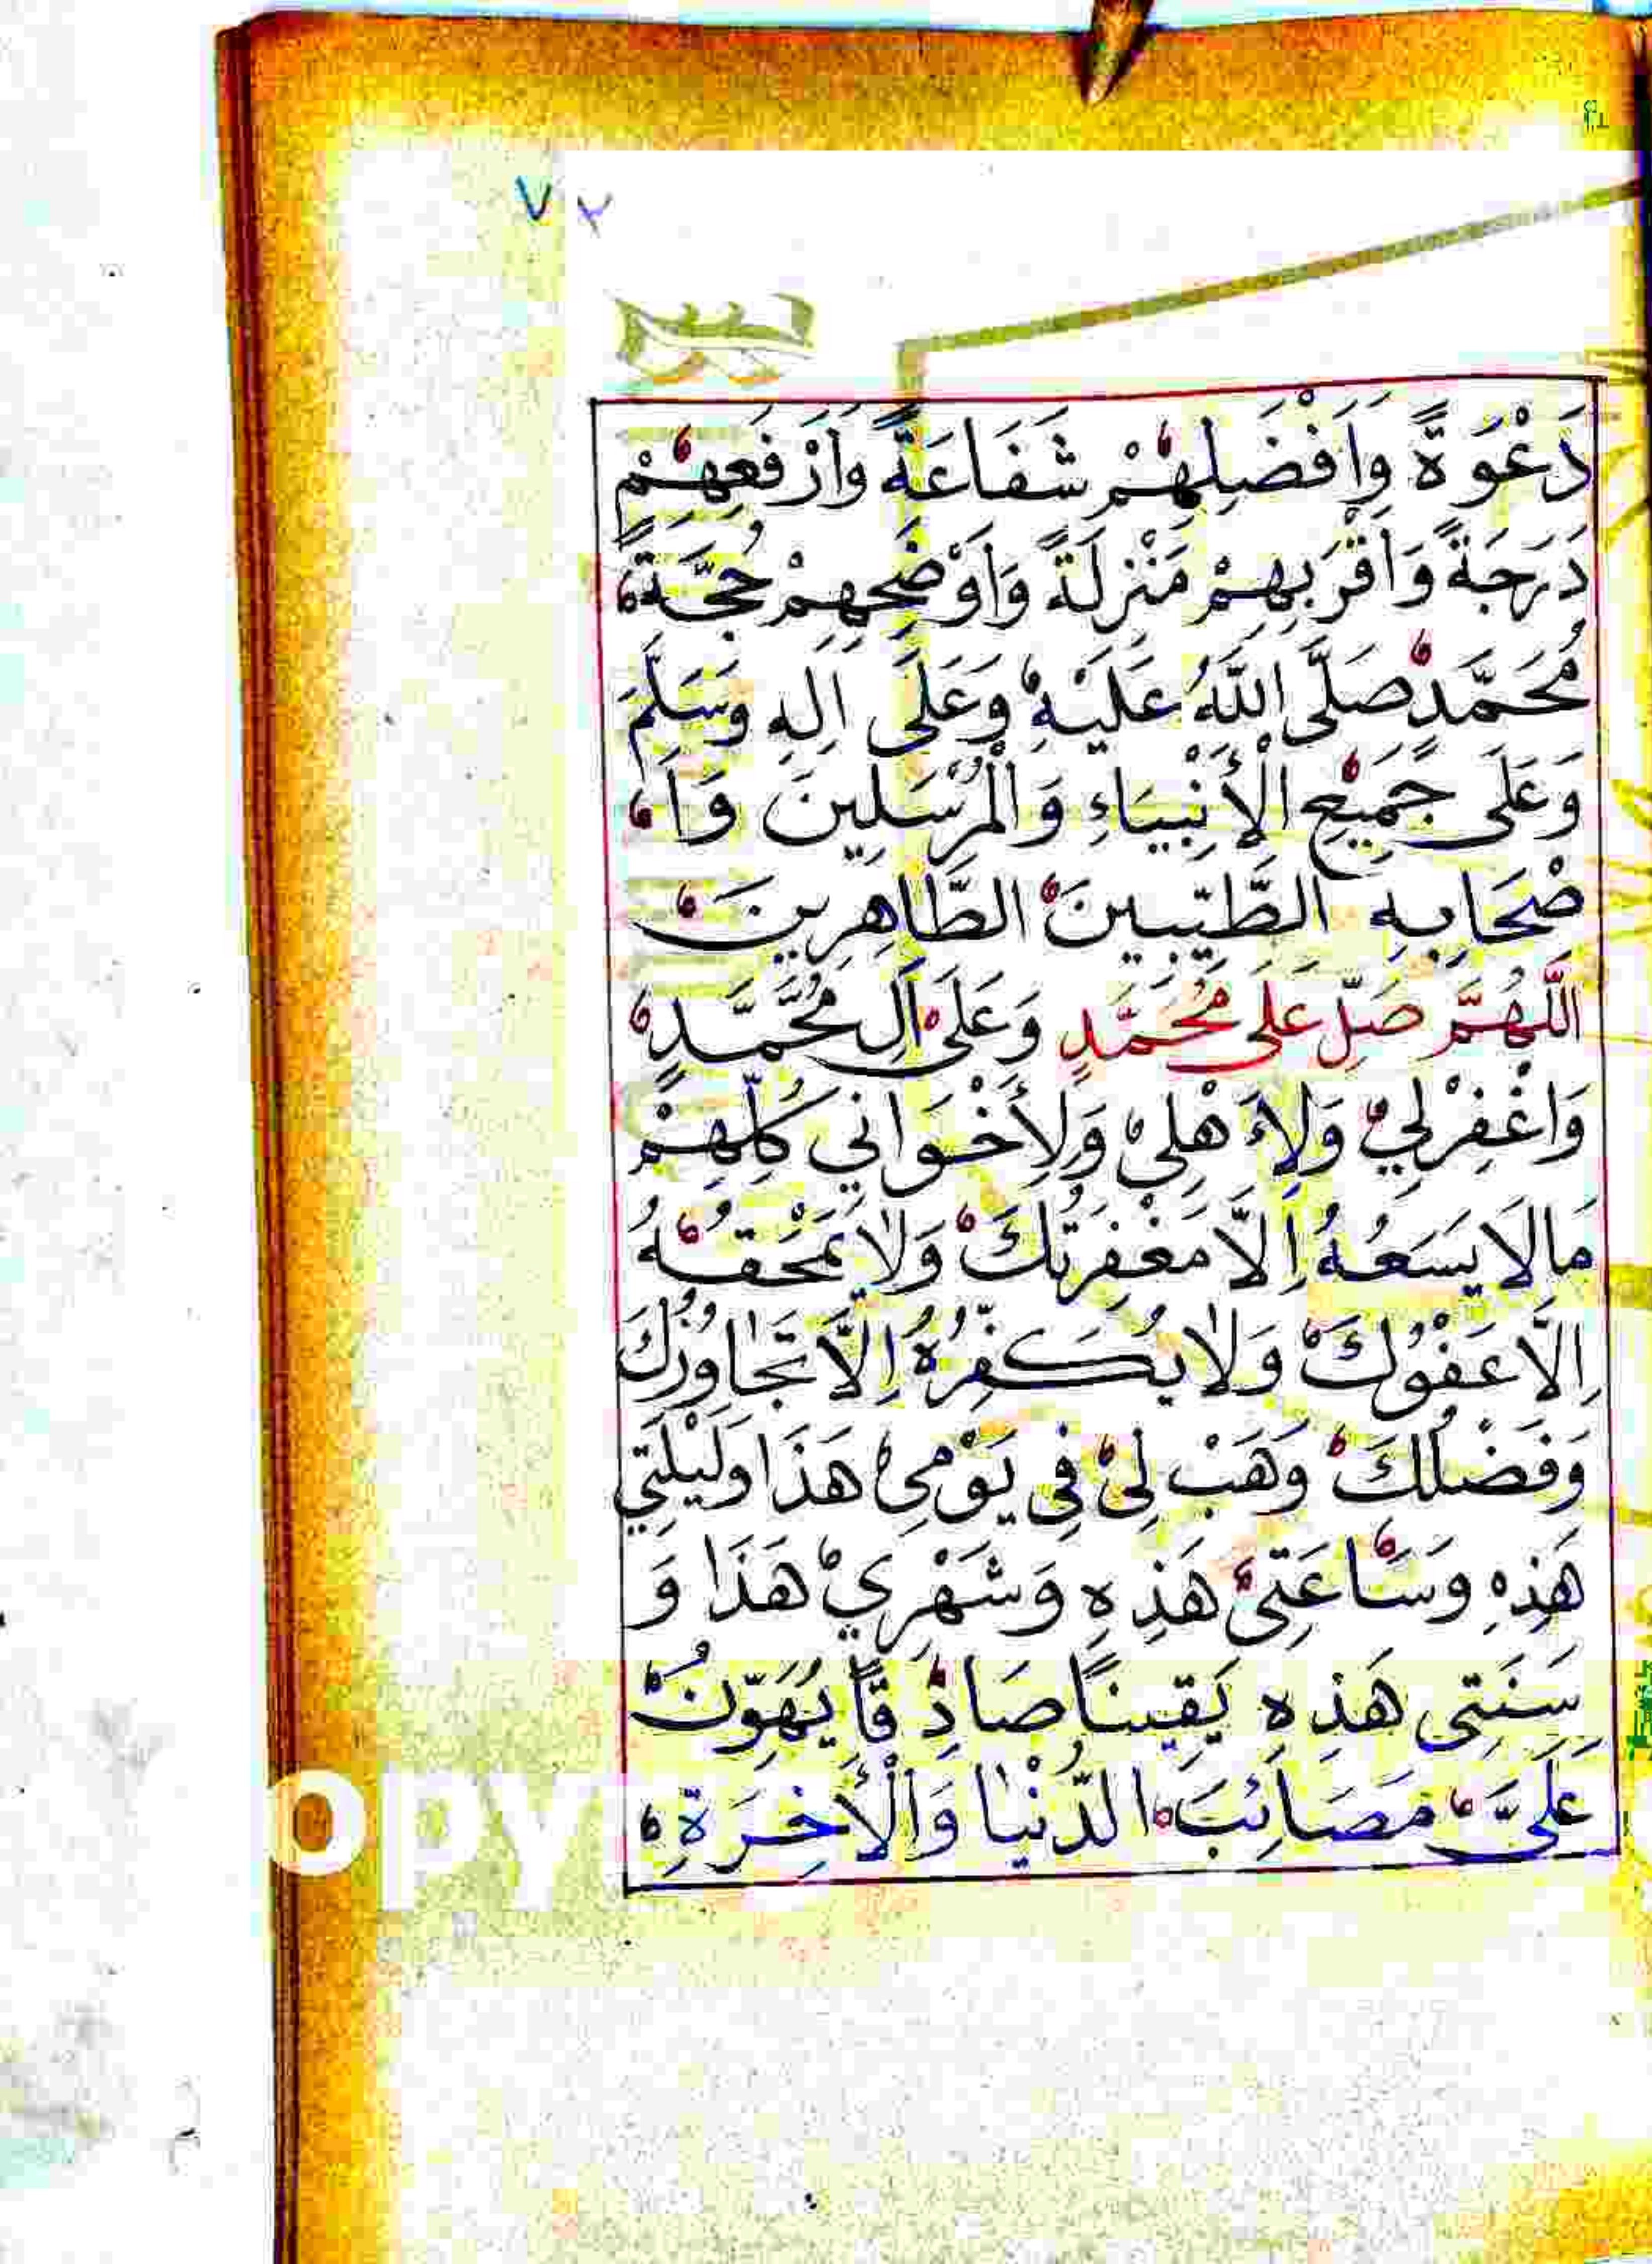 ٧٢
دَعْوَةً وَاَفْضَلِهِمْ شَفَاعَةً وَاَرْفَعِهِمْ
دَرَجَةً وَاَقْرَبِهِمْ مَنْزِلَةً وَاَوْضَحِهِمْ حُجَّةً
مُحَمَّدٍ صَلَّى اللّٰهُ عَلَيْهِ وَعَلَى اٰلِهِ وَسَلَّمَ
وَعَلَى جَمِيْعِ الْأَنْبِيَاءِ وَالْمُرْسَلِينَ وَاَ
صْحَابِهِ الطَّيِّبِينَ الطَّاهِرِينَ
اَللّٰهُمَّ صَلِّ عَلَى مُحَمَّدٍ وَعَلَى آلِ مُحَمَّدٍ
وَاغْفِرْلِيْ وَلِاَهْلِيْ وَلِأَخْوَانِي كُلِّهِمْ
مَالَا يَسَعُهُ اِلَّا مَغْفِرَتُكَ وَلَا يَمْحَقُهُ
اِلَّا عَفْوُكَ وَلَا يُكَفِّرُهُ اِلَّا تَجَاوُزُكَ
وَفَضْلُكَ وَهَبْ لِيْ فِي يَوْمِيْ هَذَا وَلَيْلَتِي
هَذِهِ وَسَاعَتِيْ هَذِهِ وَشَهْرِيْ هَذَا وَ
سَنَتِى هَذِهِ يَقِينًا صَادِقًا يُهَوِّنُ
عَلَيَّ مَصَائِبَ الدُّنْيَا وَالْأَخِرَةِ
OPY